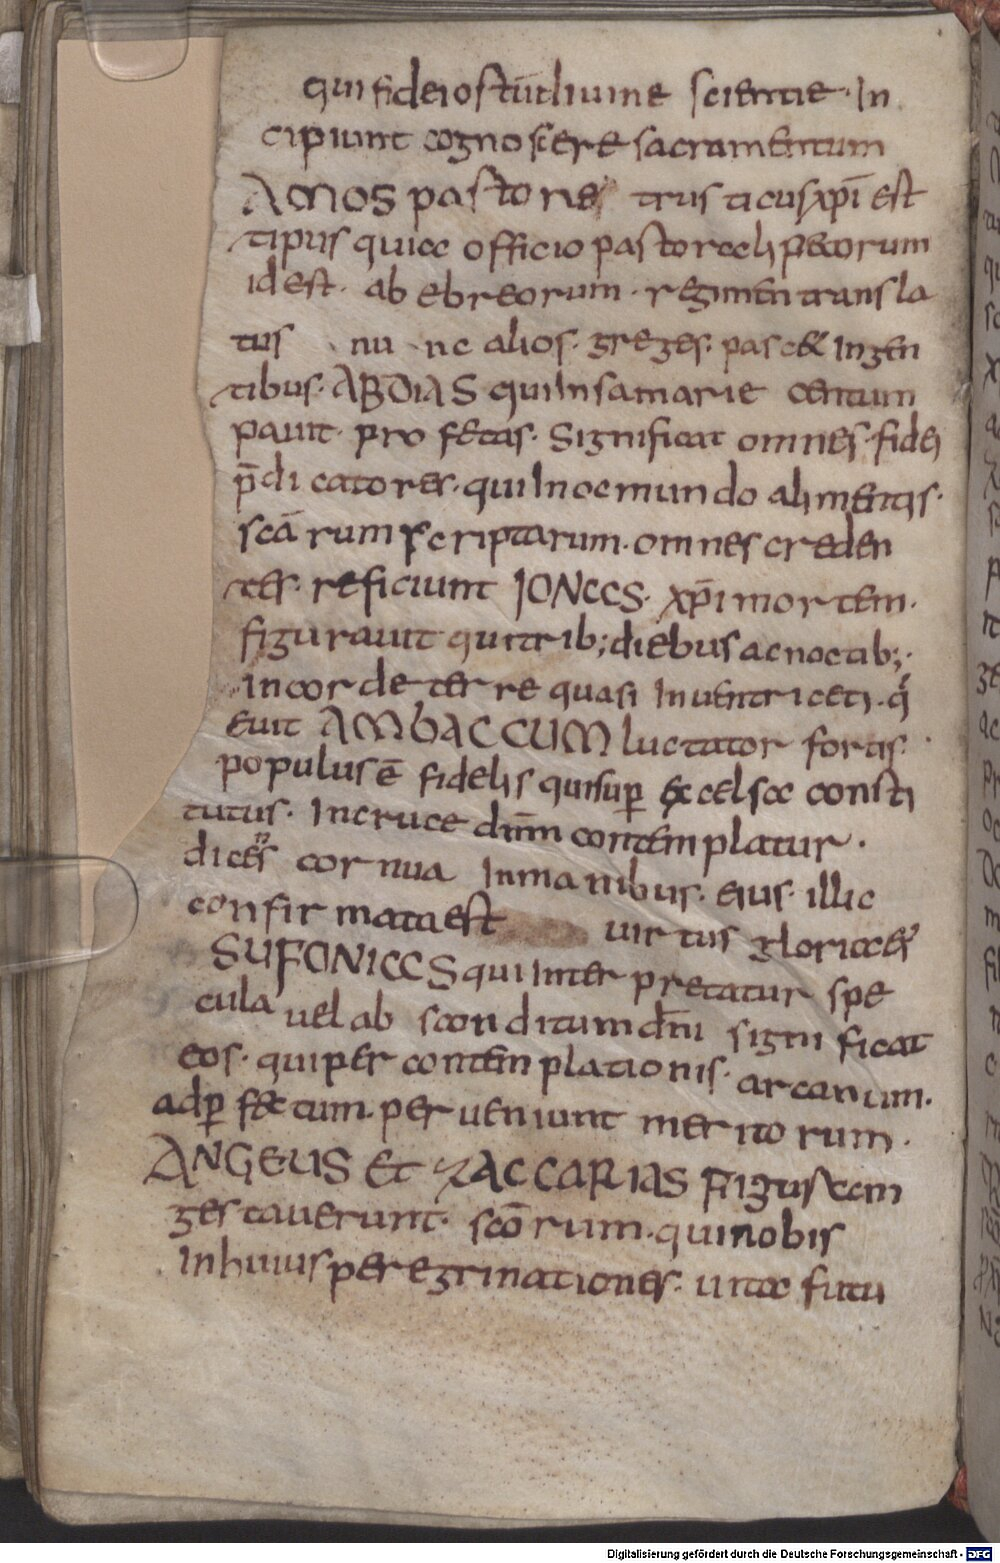 qui fidei ostiū diuine scientie · In
cipiunt cognoscere sacramentum
AMOS pastor et rusticus xp̄i est
tipus qui a officio pastorali pecorum
id est · ab ebreorum · regimen transla
tus nunc alios · greges · pascet In gen
tibus · ABDIAS qui In samarie centum
pauit · profetas · Significat omnes · fidei
p̄dicatores · qui In oc mundo alimentis ·
scārum scriptarum · omnes creden
tes · reficiunt IONAS · xp̄i mortem ·
figurauit qui trib; diebus ac noctib; ·
In corde terre quasi In uentri ceti · q
euit AMBACCUM luctator fortis ·
populus ē fidelis qui sup excelsa consti
tutus · In cruce dn̄m contemplatur ·
dices cornua In manibus · eius · illic
confirmata est uirtus glorie eius
SUFONIAS qui Interpretatur spe
cula uel absconditum dn̄i significat
eos · qui per contemplationis · arcanum ·
ad pfectum · perueniunt meritorum ·
ANGEUS Et ZACCARIAS figuram
gestauerunt · scōrum · qui nobis
In huius peregrinationes · uita futu
Digitalisierung gefördert durch die Deutsche Forschungsgemeinschaft - DFG